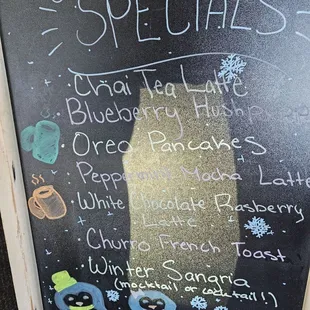 SPECIALS
Chai Tea Latte
Blueberry Hushp
Oreo Pancakes
Peppermint Mocha Latte
White Chocolate Rasberry
Latte
Churro French Toast
Winter Sangria
(mocktail or cocktail!)